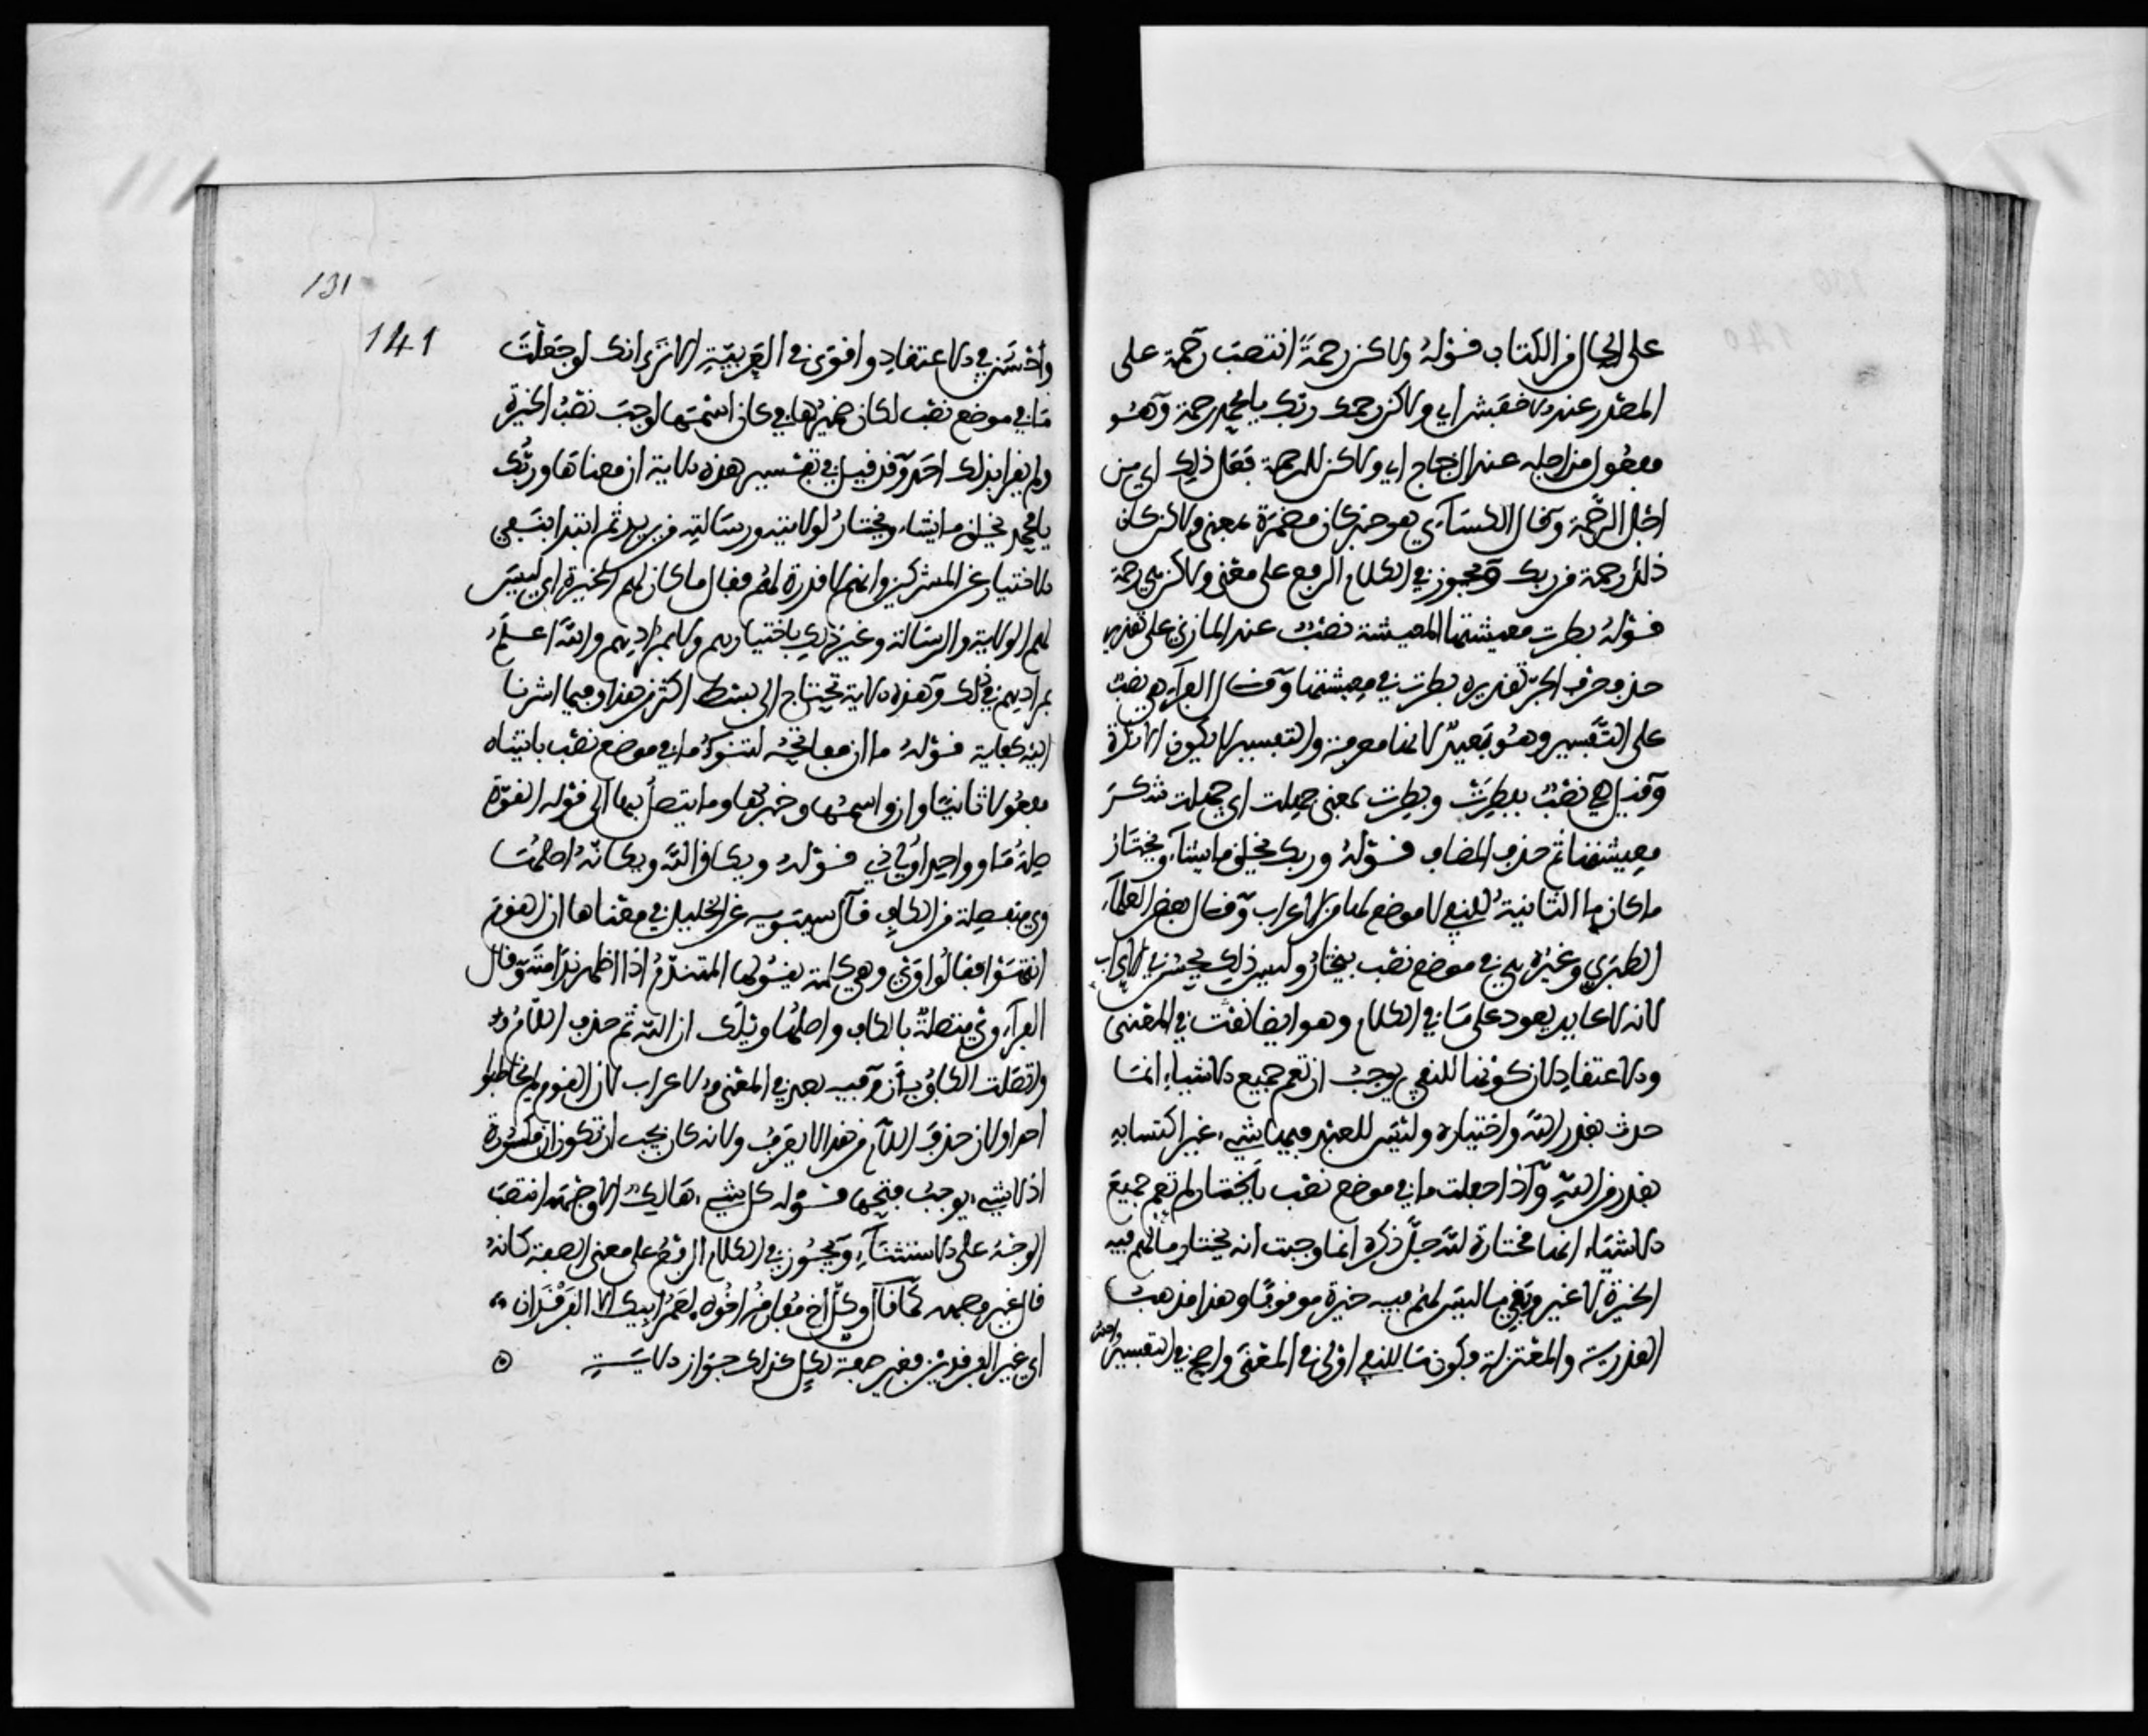 على الحال من الكتاب قوله ولاكن رحمةً انتصب رحمة على
المصدر عند الاخفش اي ولاكن رحمك ربك يا محمد رحمة وهو
مفعول من اجله عند الزجاج اي ولاكن للرحمة فعل ذلك اي من
اجل الرحمة وقال الكسائي هو خبر كان مضمرة بمعنى ولاكن كان
ذلك رحمة من ربك ويجوز في الكلام الرفع على معنى ولاكن هي رحمة
قوله بطرت معيشتها المعيشة نصب عند المازني على تقدير
حذف حرف الجر تقديره بطرت في معيشتها وقال الفراء هي نصب
على التفسير وهو بعيد لانها معرفة والتفسير لا يكون الا نكرة
وقيل هي نصب ببطرت وبطرت بمعنى جهلت اي جهلت شكر
معيشتها ثم حذف المضاف قوله وربك يخلق ما يشاء ويختار
ما كان ما الثانية للنفي لا موضع لها من الاعراب وقال بعض العلماء
الطبري وغيره هي في موضع نصب بيختار وليس ذلك بحسن في الاعراب
لانه لا عايد يعود على ما في الكلام وهو ايضا بعيد في المعنى
والاعتقاد لان كونها للنفي يوجب ان تعم جميع الاشياء انما
حدثت بقدر الله واختياره وليس للعبد فيها شيء غير اكتسابه
بقدر من الله واذا جعلت ما في موضع نصب بيختار لم تعم جميع
الاشياء انها مختارة لله جل ذكره انما وجبت انه يختار ما لهم فيه
الخيرة لا غير وبقي ما ليس لهم فيه خيرة موقوفا وهذا مذهب
القدرية والمعتزلة فكون ما للنفي اولى في المعنى واصح في التفسير واحسن
131
141
واحسن في الاعتقاد واقوى في العربية الا ترى انك لو جعلت
ما في موضع نصب لكان ضميرها في كان اسمها لوجب نصب الخيرة
ولم يقرا بذلك احد وقد قيل في تفسير هذه الاية ان معناها وربك
يا محمد يخلق ما يشاء ويختار لولايته ورسالته من يريد ثم ابتدا بنفي
الاختيار عن المشركين وانهم لا قدرة لهم فقال ما كان لهم الخيرة اي ليس
لهم الولاية والرسالة وغير ذلك باختيارهم ولا بمرادهم والله اعلم
بمراده في ذلك وهذه الاية تحتاج الى بسط اكثر من هذا وفيما اشرنا
اليه كفاية قوله ما ان مفاتحه لتنوء ما في موضع نصب باتيناه
مفعولا ثانيا وان واسمها وخبرها وما يتصل بها الى قوله القوة
صلة ما وواحد اولي ذي قوله ويكان الله ويكانه اصلها
وي منفصلة من الكاف قال سيبويه عن الخليل في معناها ان القوم
انتبهوا فقالوا وي وهي كلمة يقولها المتندم اذا اظهر ندامته وقال
الفراء وي متصلة بالكاف واصلها ويلك ان الله ثم حذف اللام
واتصلت الكاف بان وفيه بعد في المعنى والاعراب لان القوم لم يخاطبوا
احدا ولان حذف اللام من هذا لا يعرف ولانه كان يجب ان تكون ان مكسورة
اذ لا شيء يوجب فتحها قوله كل شيء هالك الا وجهه انتصب
الوجه على الاستثناء ويجوز في الكلام الرفع على معنى الصفة كانه
قال غير وجهه كما قال وكل اخ مفارقه اخوه لعمر ابيك الا الفرقدان
اي غير الفرقدين فغير صفة لكل كذلك جواز الاية